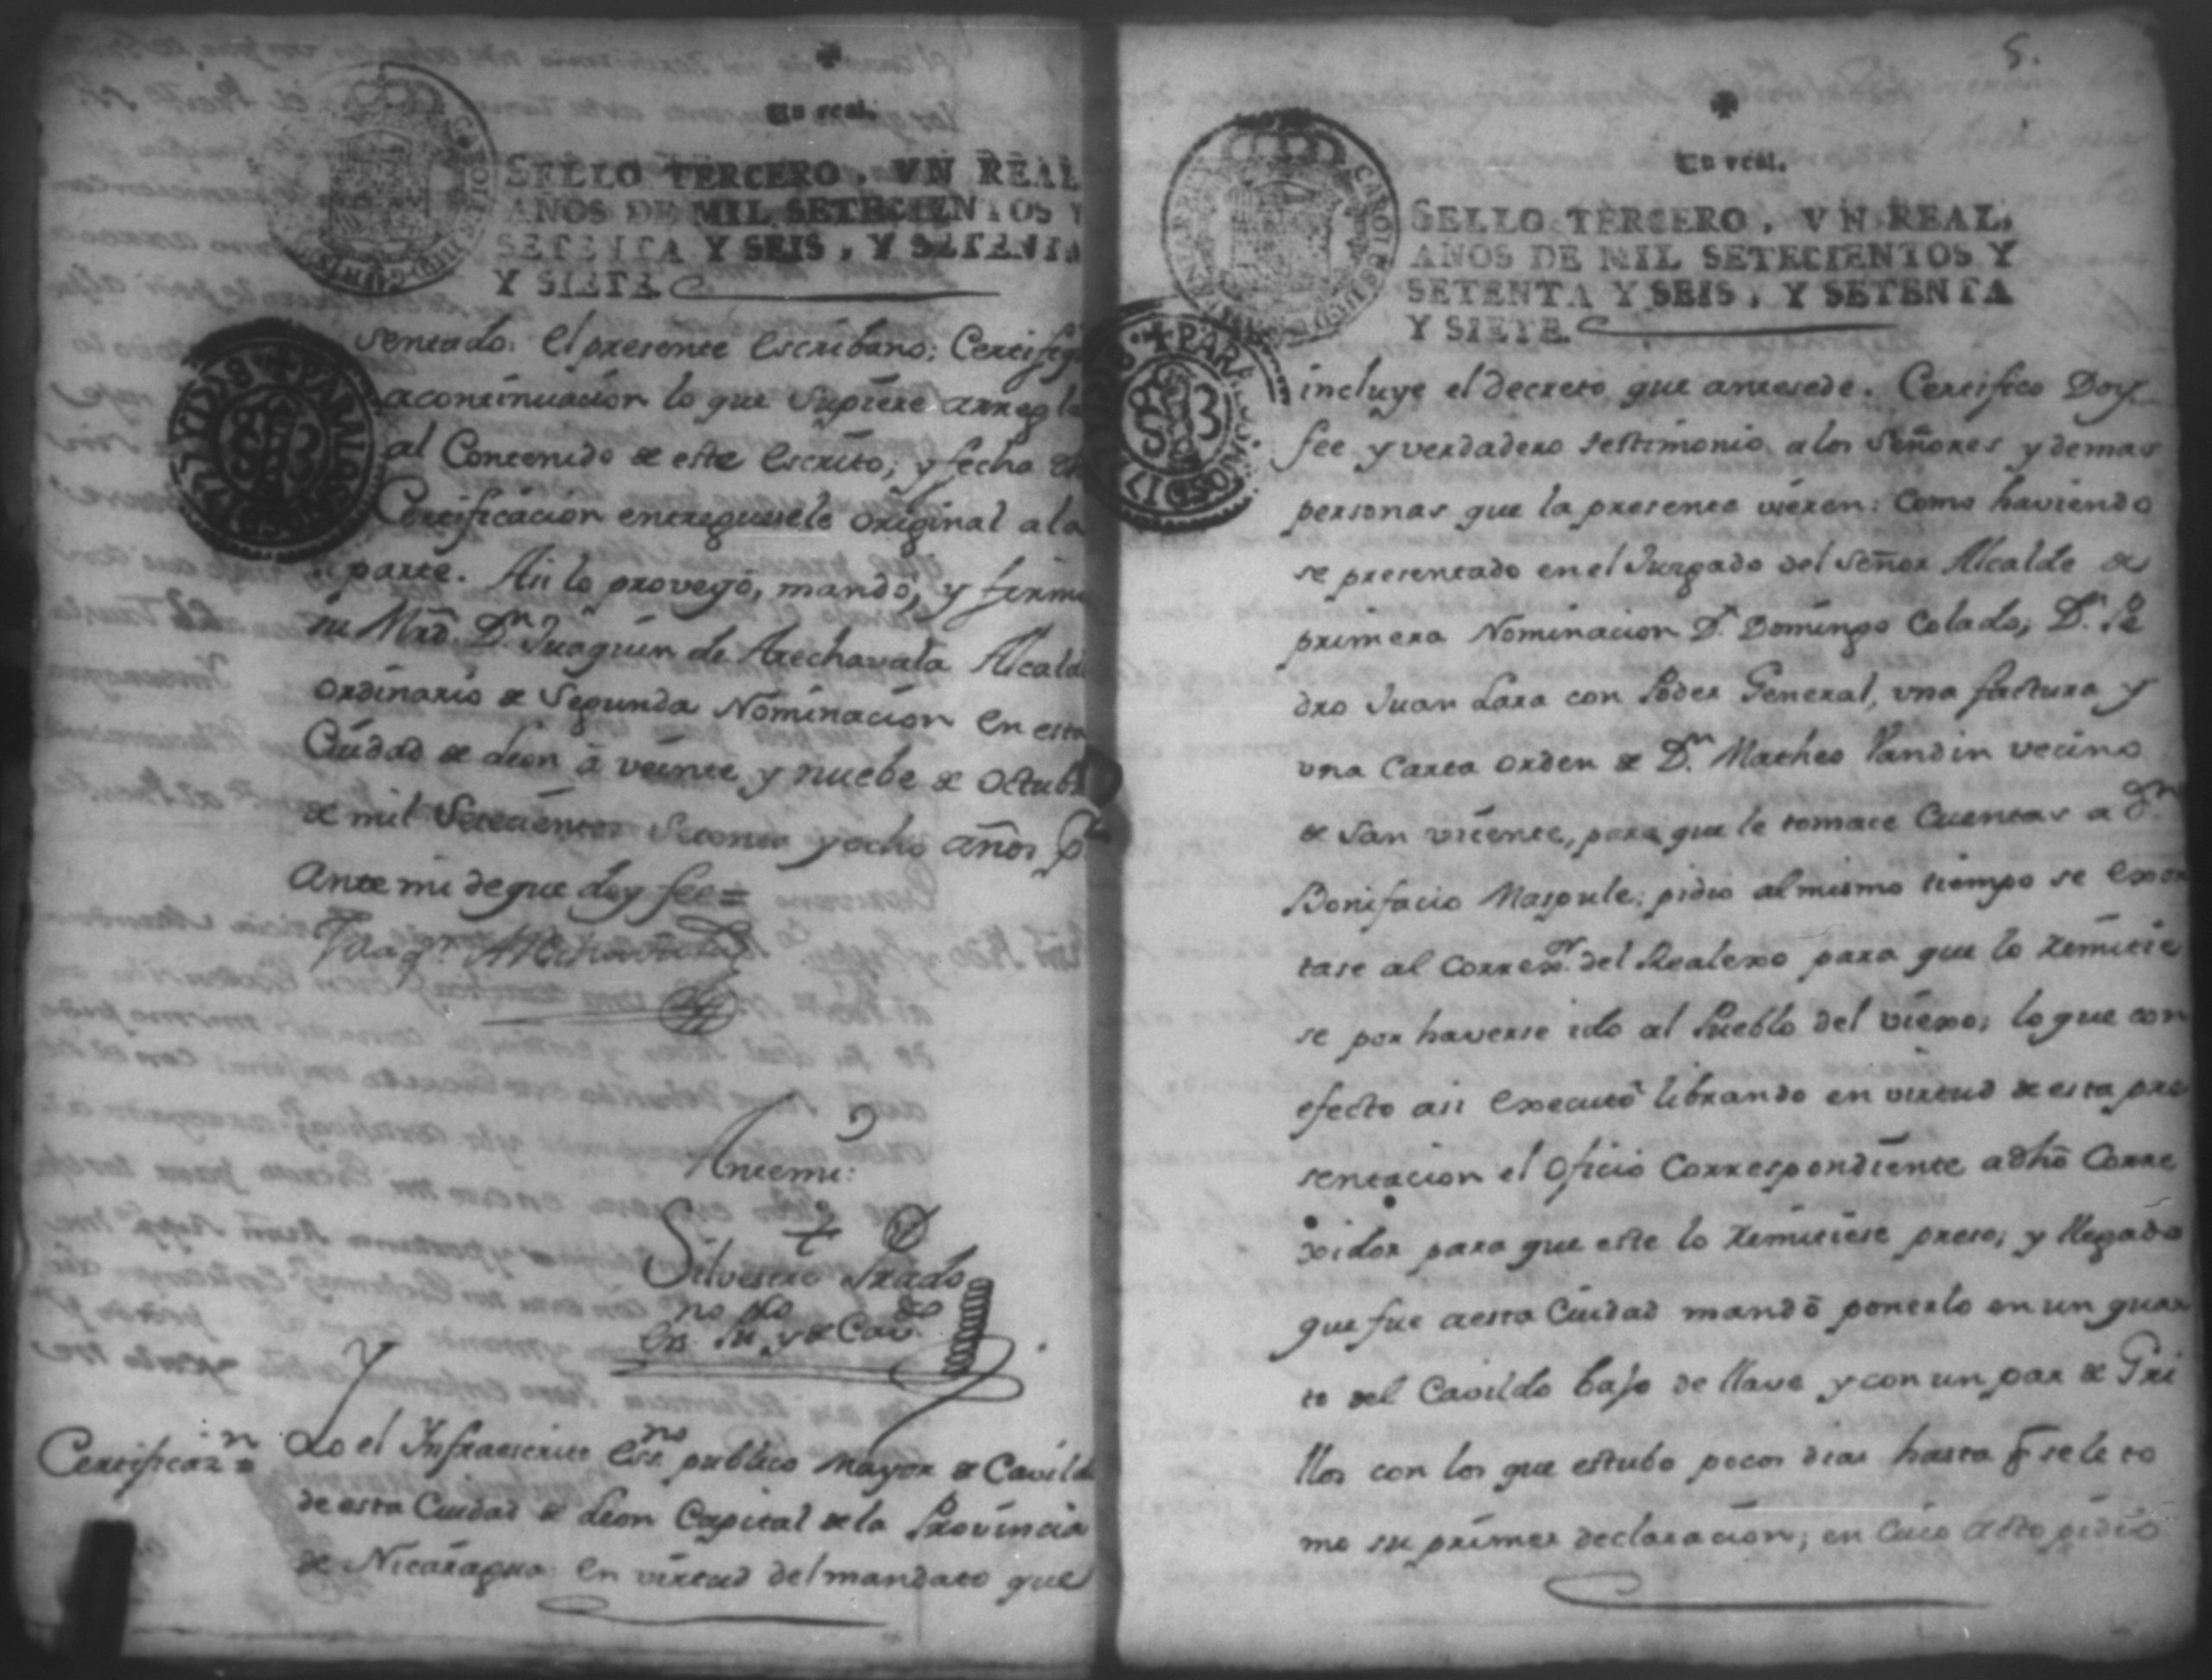 Un real.
SELLO TERCERO, VN REAL
AÑOS DE MIL SETECIENTOS Y
SETENTA Y SEIS, Y SETENTA
Y SIETE.
sentado: el presente escribano; Certifiq
acontinuacion lo que supiere arregla
al Contenido de este escrito, y fecha
Certificacion entreguesele original a la
parte. Asi lo proveyó, mandó, y firmo
su Mrd. Dn. Juaquin de Arechavala Alcald
ordinario de Segunda Nominacion en esta
Ciudad de Leon â veinte y nuebe de Octub
de mil Setecientos Setenta y ocho años
Ante mi de que doy fee=
Juaqn. Arechavala
Ante mi:
Silvestre Prado
Certificazn.=
Yo el Infraescrito Essno publico mayor de Cavild
de esta Ciudad de Leon Capital de la Provincia
de Nicaragua en virtud del mandato que
5.
Un real.
SELLO TERCERO, VN REAL.
AÑOS DE MIL SETECIENTOS Y
SETENTA Y SEIS, Y SETENTA
Y SIETE.
incluye el decreto que antesede. Certifico Doy
fee y verdadero testimonio a los Señores y demas
personas que la presente vieren: Como haviendo
se presentado en el Jurgado del Señor Alcalde de
primera Nominacion Dn. Domingo Colado, Dn. Pe
dro Juan Lara con Poder General, vna factura y
vna Carta orden de Dn. Matheo Pandin vecino
de San vicente, para que le tomace Cuentas a Dn.
Bonifacio Maspule: pidio al mismo tiempo se exor
tase al Correxor. del Realexo para que lo remitie
se por haverse ido al Pueblo del viexo; lo que con
efecto asi executó librando en virtud de esta pre
sentacion el oficio Correspondiente a dho Corre
xidor para que este lo remitiese preso; y llegado
que fue a esta Ciudad mandó ponerlo en un quar
to del Cavildo bajo de llave y con un par de Gri
llos con los que estubo pocos dias hasta q̃ se le to
mo su primer declaracion; en cuio acto pidio